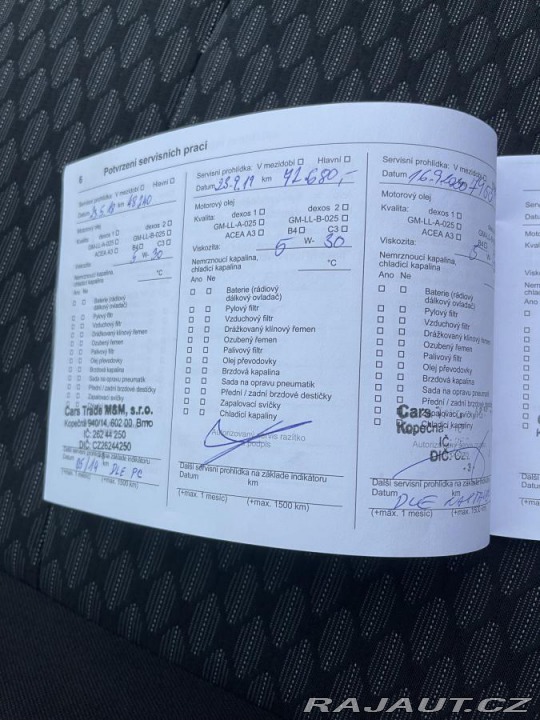 6 Potvrzení servisních prací
Servisní prohlídka: V mezidobí ☐ Hlavní ☐
Datum km
Motorový olej
Kvalita: dexos 1 ☐ dexos 2 ☐
GM-LL-A-025 ☐ GM-LL-B-025 ☐
ACEA A3 ☐ B4 ☐ C3 ☐
Viskozita: 5 W- 30
Nemrznoucí kapalina,
chladicí kapalina °C
Ano Ne
☐ ☐ Baterie (rádiový
dálkový ovladač)
☐ ☐ Pylový filtr
☐ ☐ Vzduchový filtr
☐ ☐ Drážkovaný klínový řemen
☐ ☐ Ozubený řemen
☐ ☐ Palivový filtr
☐ ☐ Olej převodovky
☐ ☐ Brzdová kapalina
☐ ☐ Sada na opravu pneumatik
☐ ☐ Přední / zadní brzdové destičky
☐ ☐ Zapalovací svíčky
Cars Trade M&M, s.r.o.
Kopečná 940/14, 602 00, Brno
IČ: 262 44 250
DIČ: CZ26244250
Další servisní prohlídka na základě indikátoru
Datum km
DLE PC
(+max. 1 měsíc) (+max. 1500 km)
Servisní prohlídka: V mezidobí ☐ Hlavní ☐
Datum 23.9.19 km 72.680,-
Motorový olej
Kvalita: dexos 1 ☐ dexos 2 ☐
GM-LL-A-025 ☐ GM-LL-B-025 ☐
ACEA A3 ☐ B4 ☐ C3 ☐
Viskozita: W- 30
Nemrznoucí kapalina,
chladicí kapalina °C
Ano Ne
☐ ☐ Baterie (rádiový
dálkový ovladač)
☐ ☐ Pylový filtr
☐ ☐ Vzduchový filtr
☐ ☐ Drážkovaný klínový řemen
☐ ☐ Ozubený řemen
☐ ☐ Palivový filtr
☐ ☐ Olej převodovky
☐ ☐ Brzdová kapalina
☐ ☐ Sada na opravu pneumatik
☐ ☐ Přední / zadní brzdové destičky
☐ ☐ Zapalovací svíčky
☐ ☐ Chladicí kapalina
Autorizovaný servis razítko
podpis
Další servisní prohlídka na základě indikátoru
Datum km
(+max. 1 měsíc) (+max. 1500 km)
Servisní prohlídka: V mezidobí
Datum 16.9.2020
Motorový olej
Kvalita: dexos 1 ☐
GM-LL-A-025 ☐
ACEA A3 ☐
Viskozita:
Nemrznoucí kapalina,
chladicí kapalina
Ano Ne
☐ ☐ Baterie (rádiový
dálkový ovladač)
☐ ☐ Pylový filtr
☐ ☐ Vzduchový filtr
☐ ☐ Drážkovaný klínový řemen
☐ ☐ Ozubený řemen
☐ ☐ Palivový filtr
☐ ☐ Olej převodovky
☐ ☐ Brzdová kapalina
☐ ☐ Sada na opravu pneumatik
Přední / zadní brzdové destičky
Cars
Kopečná
IČ:
DIČ: CZ
Další servisní prohlídka na základě
Datum km
DLE
(+max. 1 měsíc) (+max. 1500
RAJAUT.CZ